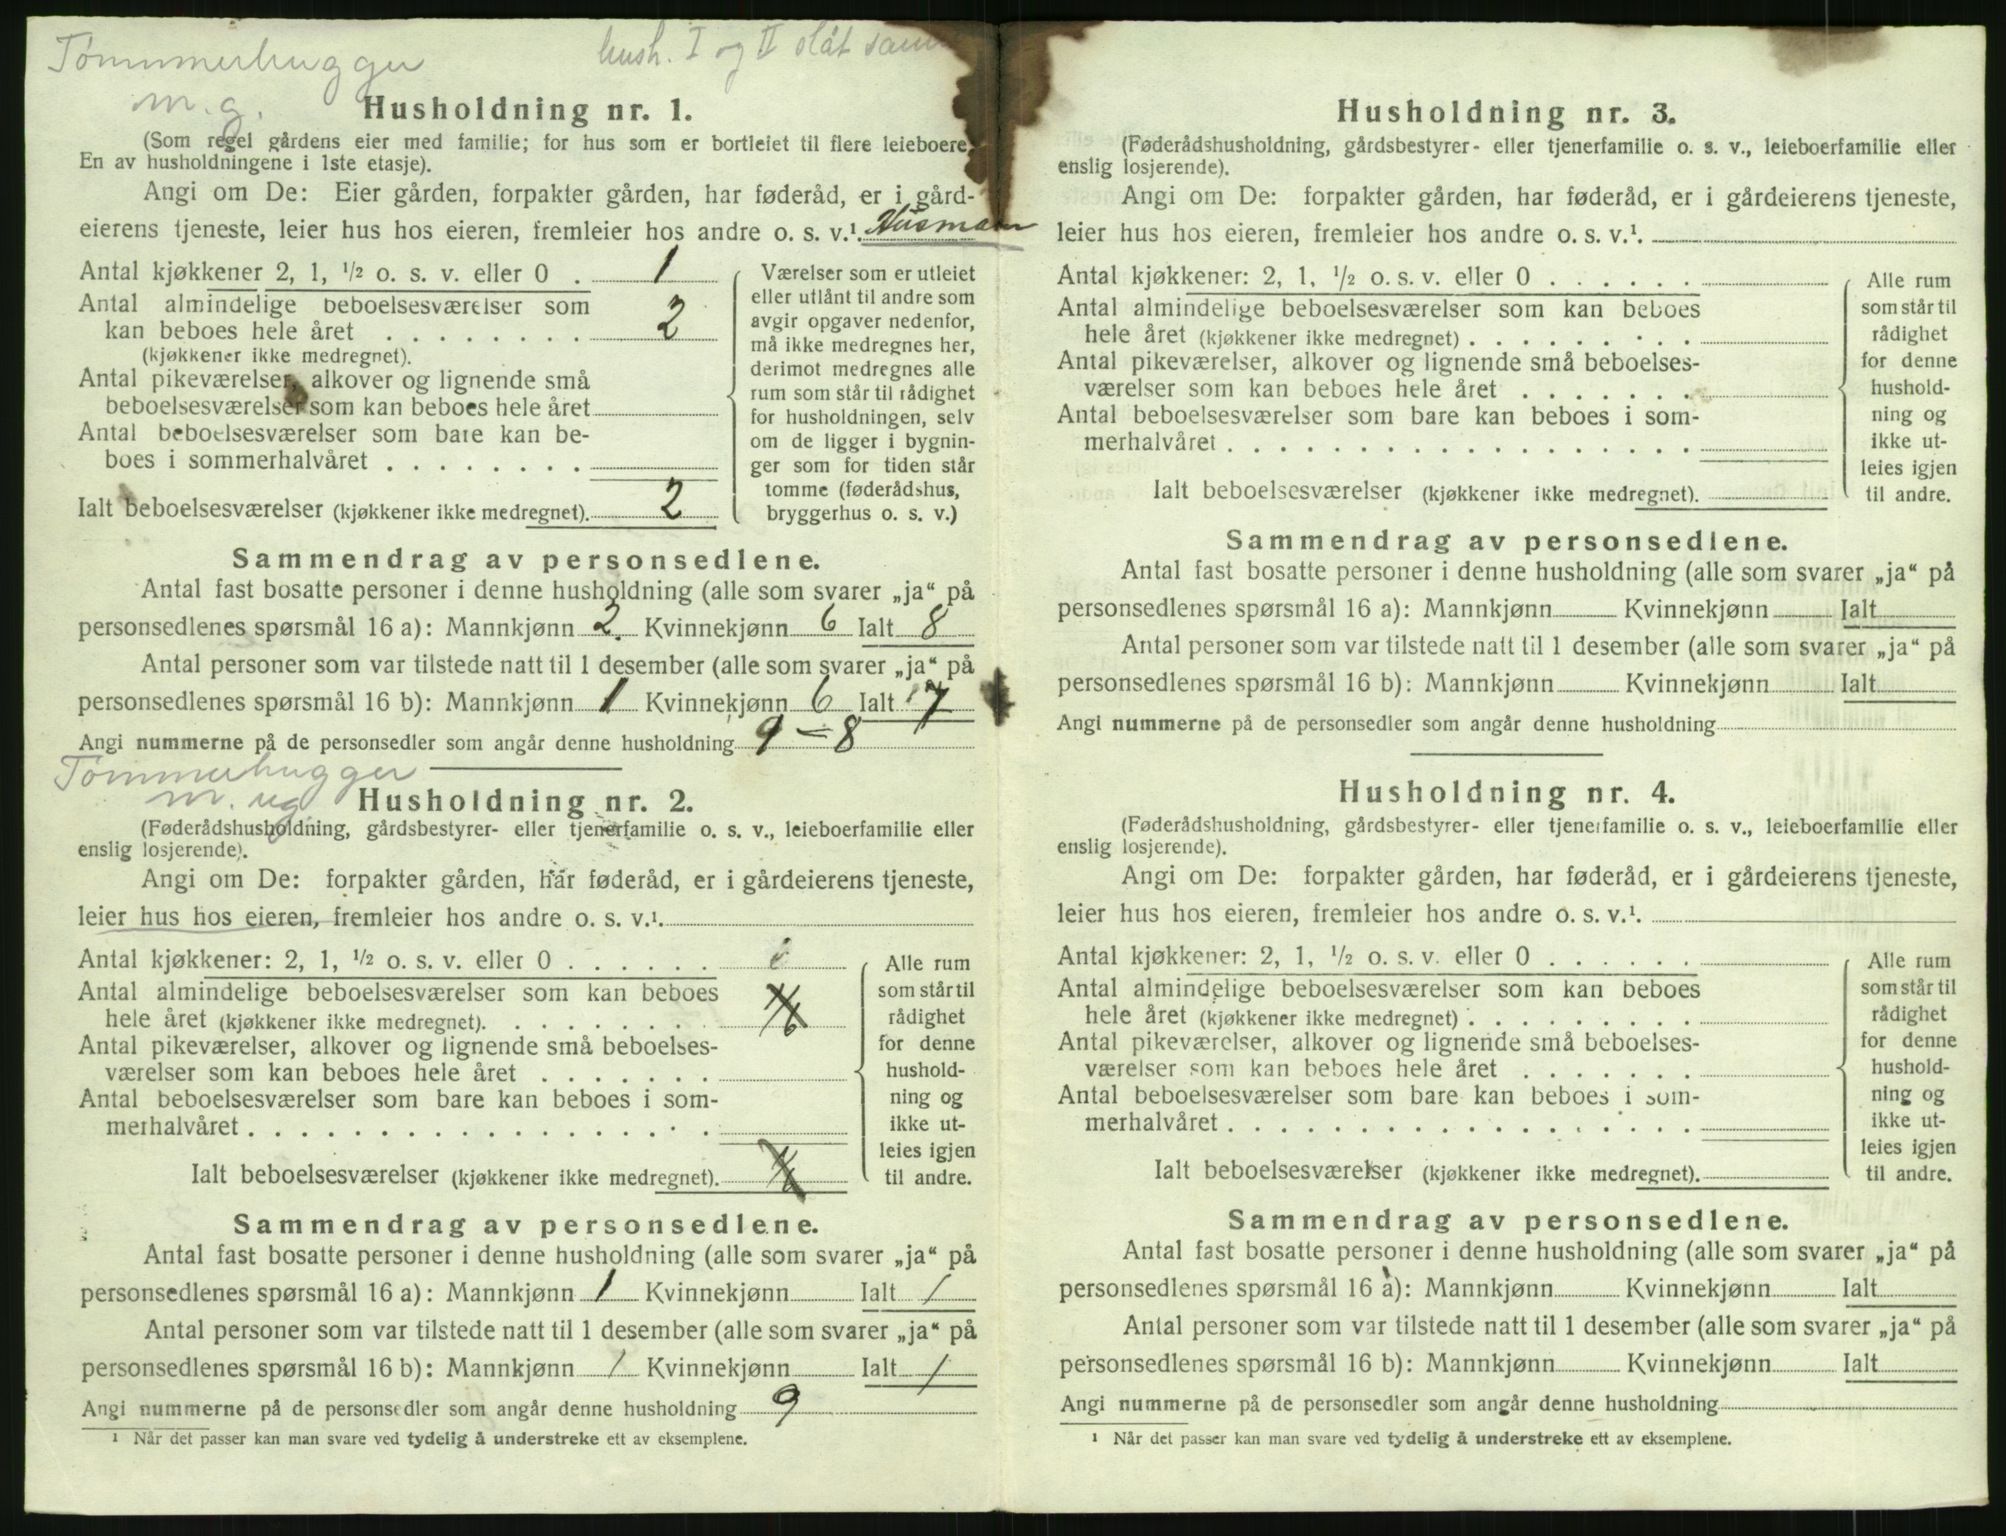 Tømmerhugger
m. g.
hush. I og II slåt sam
Husholdning nr. 1.
(Som regel gårdens eier med familie; for hus som er bortleiet til flere leieboere.
En av husholdningene i 1ste etasje).
Angi om De: Eier gården, forpakter gården, har føderåd, er i gård-
eierens tjeneste, leier hus hos eieren, fremleier hos andre o. s. v.¹. Husmann
Antal kjøkkener 2, 1, ½ o. s. v. eller 0 . 1
Antal almindelige beboelsesværelser som
kan beboes hele året . . . . . . . . 2
(kjøkkener ikke medregnet).
Antal pikeværelser, alkover og lignende små
beboelsesværelser som kan beboes hele året
Antal beboelsesværelser som bare kan be-
boes i sommerhalvåret . . . . . . . .
Ialt beboelsesværelser (kjøkkener ikke medregnet). 2
Værelser som er utleiet
eller utlånt til andre som
avgir opgaver nedenfor,
må ikke medregnes her,
derimot medregnes alle
rum som står til rådighet
for husholdningen, selv
om de ligger i bygnin-
ger som for tiden står
tomme (føderådshus,
bryggerhus o. s. v.)
Sammendrag av personsedlene.
Antal fast bosatte personer i denne husholdning (alle som svarer „ja“ på
personsedlenes spørsmål 16 a): Mannkjønn 2. Kvinnekjønn 6 Ialt 8
Antal personer som var tilstede natt til 1 desember (alle som svarer „ja“ på
personsedlenes spørsmål 16 b): Mannkjønn 1 Kvinnekjønn 6 Ialt 7
Angi nummerne på de personsedler som angår denne husholdning 1 – 8
Tømmerhugger
m. ug
Husholdning nr. 2.
(Føderådshusholdning, gårdsbestyrer- eller tjenerfamilie o. s. v., leieboerfamilie eller
enslig losjerende).
Angi om De: forpakter gården, har føderåd, er i gårdeierens tjeneste,
leier hus hos eieren, fremleier hos andre o. s. v.¹.
Antal kjøkkener: 2, 1, ½ o. s. v. eller 0 . . . . . .
Antal almindelige beboelsesværelser som kan beboes
hele året (kjøkkener ikke medregnet). . . . . . . . .
Antal pikeværelser, alkover og lignende små beboelses-
værelser som kan beboes hele året . . . . . . .
Antal beboelsesværelser som bare kan beboes i som-
merhalvåret . . . . . . . . . . . . . . . . . .
Ialt beboelsesværelser (kjøkkener ikke medregnet).
Alle rum
som står til
rådighet
for denne
hushold-
ning og
ikke ut-
leies igjen
til andre.
Sammendrag av personsedlene.
Antal fast bosatte personer i denne husholdning (alle som svarer „ja“ på
personsedlenes spørsmål 16 a): Mannkjønn 1 Kvinnekjønn Ialt 1
Antal personer som var tilstede natt til 1 desember (alle som svarer „ja“ på
personsedlenes spørsmål 16 b): Mannkjønn 1 Kvinnekjønn Ialt 1
Angi nummerne på de personsedler som angår denne husholdning 9
¹ Når det passer kan man svare ved tydelig å understreke ett av eksemplene.
Husholdning nr. 3.
(Føderådshusholdning, gårdsbestyrer- eller tjenerfamilie o. s. v., leieboerfamilie eller
enslig losjerende).
Angi om De: forpakter gården, har føderåd, er i gårdeierens tjeneste,
leier hus hos eieren, fremleier hos andre o. s. v.¹.
Antal kjøkkener: 2, 1, ½ o. s. v. eller 0 . . . . . .
Antal almindelige beboelsesværelser som kan beboes
hele året (kjøkkener ikke medregnet) . . . . . . . . .
Antal pikeværelser, alkover og lignende små beboelses-
værelser som kan beboes hele året . . . . . . .
Antal beboelsesværelser som bare kan beboes i som-
merhalvåret . . . . . . . . . . . . . . . . . .
Ialt beboelsesværelser (kjøkkener ikke medregnet).
Alle rum
som står til
rådighet
for denne
hushold-
ning og
ikke ut-
leies igjen
til andre.
Sammendrag av personsedlene.
Antal fast bosatte personer i denne husholdning (alle som svarer „ja“ på
personsedlenes spørsmål 16 a): Mannkjønn Kvinnekjønn Ialt
Antal personer som var tilstede natt til 1 desember (alle som svarer „ja“ på
personsedlenes spørsmål 16 b): Mannkjønn Kvinnekjønn Ialt
Angi nummerne på de personsedler som angår denne husholdning
Husholdning nr. 4.
(Føderådshusholdning, gårdsbestyrer- eller tjenerfamilie o. s. v., leieboerfamilie eller
enslig losjerende).
Angi om De: forpakter gården, har føderåd, er i gårdeierens tjeneste,
leier hus hos eieren, fremleier hos andre o. s. v.¹.
Antal kjøkkener: 2, 1, ½ o. s. v. eller 0 . . . . . .
Antal almindelige beboelsesværelser som kan beboes
hele året (kjøkkener ikke medregnet) . . . . . . . . .
Antal pikeværelser, alkover og lignende små beboelses-
værelser som kan beboes hele året . . . . . . .
Antal beboelsesværelser som bare kan beboes i som-
merhalvåret . . . . . . . . . . . . . . . . . .
Ialt beboelsesværelser (kjøkkener ikke medregnet).
Alle rum
som står til
rådighet
for denne
hushold-
ning og
ikke ut-
leies igjen
til andre.
Sammendrag av personsedlene.
Antal fast bosatte personer i denne husholdning (alle som svarer „ja“ på
personsedlenes spørsmål 16 a): Mannkjønn Kvinnekjønn Ialt
Antal personer som var tilstede natt til 1 desember (alle som svarer „ja“ på
personsedlenes spørsmål 16 b): Mannkjønn Kvinnekjønn Ialt
Angi nummerne på de personsedler som angår denne husholdning
¹ Når det passer kan man svare ved tydelig å understreke ett av eksemplene.